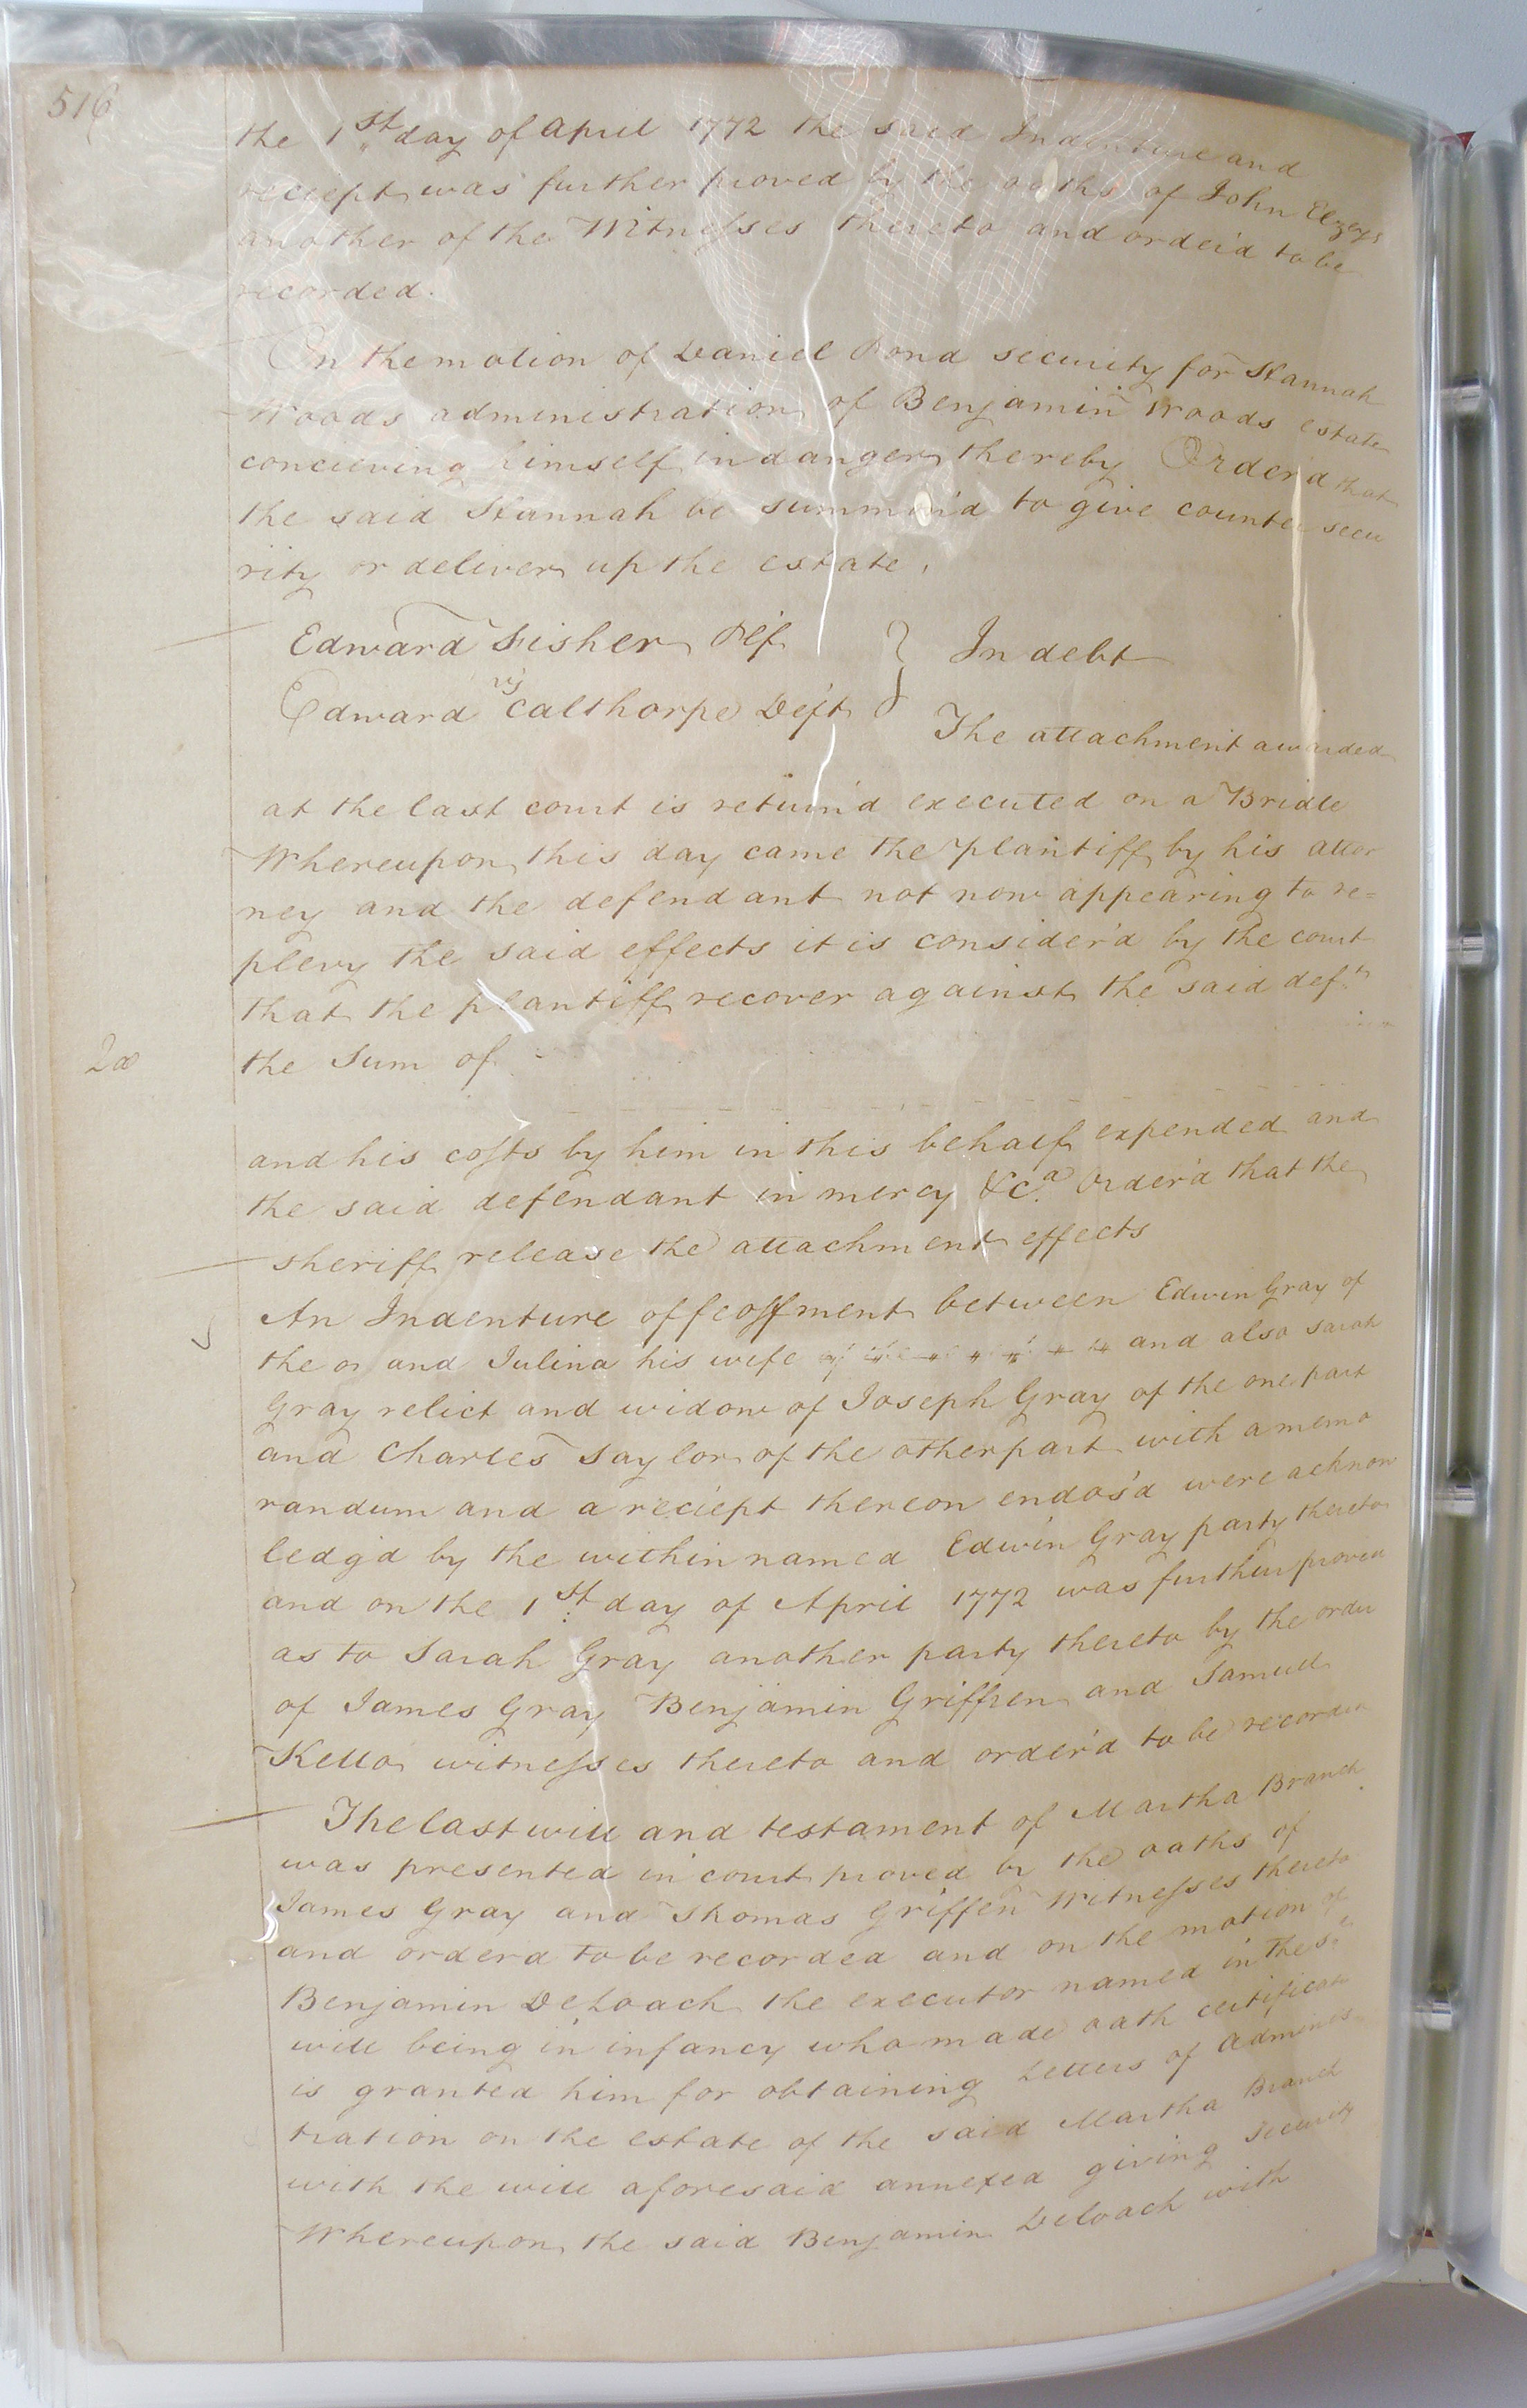 516
the 1st day of April 1772 the said Indenture and
reciept was further proved by the oaths of John Elzey
another of the Witnesses thereto and order'd to be
recorded.
On the motion of Daniel Pond security for Hannah
Woods administration of Benjamin Woods estate
concieving himself in danger thereby Order'd that
the said Hannah be summon'd to give counter secu
rity or deliver up the estate.
Edward Fisher Plf
vs
Edward Calthorpe Deft
} In debt
The attachment awarded
at the last court is return'd executed on a Bridle
Whereupon this day came the plantiff by his attor
ney and the defendant not now appearing to re=
plevy the said effects it is consider'd by the court
that the plantiff recover against the said deft
the Sum of
and his costs by him in this behalf expended and
the said defendant in mercy &ca. Order'd that the
sheriff release the attachment effects
An Indenture of feoffment between Edwin Gray of
the one and Julina his wife and also Sarah
Gray relict and widow of Joseph Gray of the one part
and Charles Saylor of the other part with a memo
randum and a reciept thereon endos'd were acknow
ledg'd by the within named Edwin Gray party thereto
and on the 1st day of April 1772 was further proven
as to Sarah Gray another party thereto by the order
of James Gray Benjamin Griffen and Samuel
Kello witnesses thereto and order'd to be recorded
The last will and testament of Martha Branch
was presented in court proved by the oaths of
James Gray and Thomas Griffen Witnesses thereto
and orderd to be recorded and on the motion of
Benjamin DeLoach the executor named in the sd
will being in infancy who made oath certificate
is granted him for obtaining Letters of Adminis
tration on the estate of the said Martha Branch
with the will aforesaid annexed giving security
Whereupon the said Benjamin Deloach with